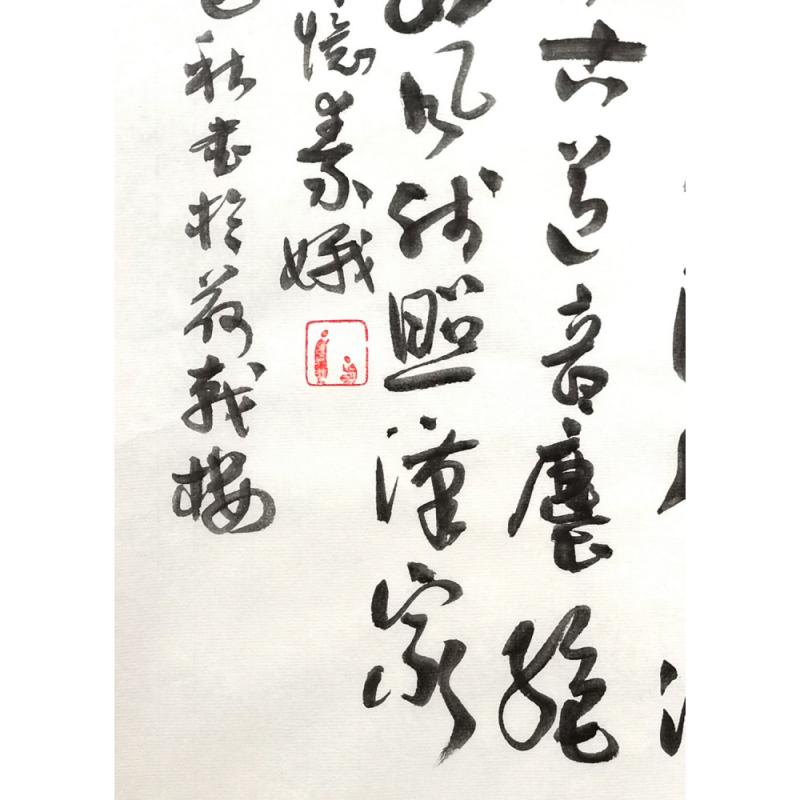 古道音塵絕
風殘照漢家
憶秦娥
秋書於荷戟樓